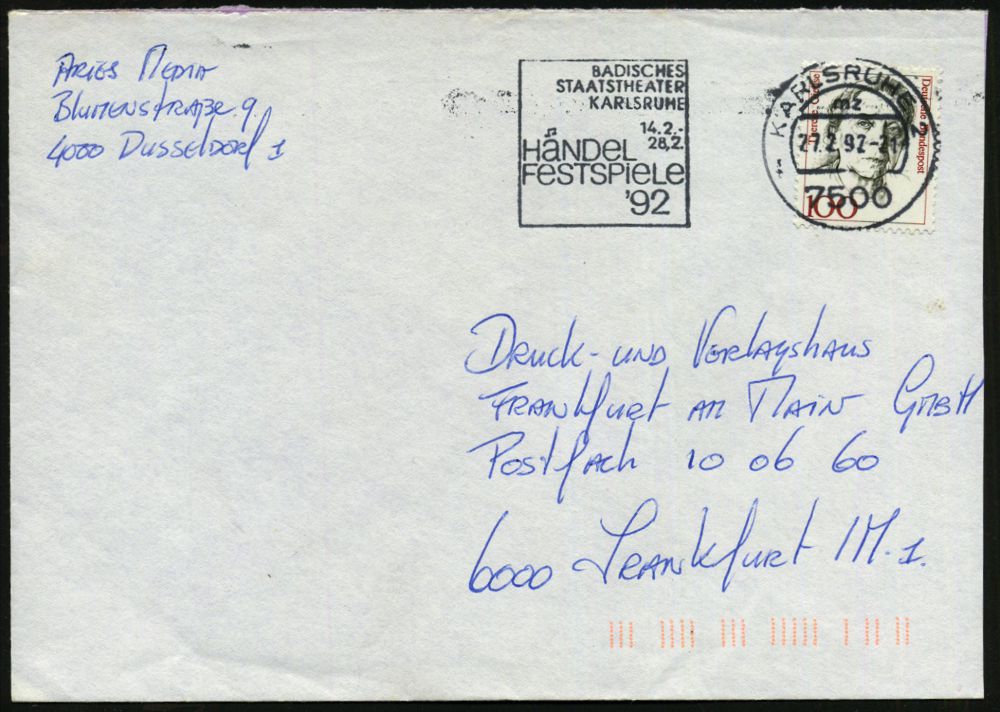 Aries Media
Blumenstraße 9
4000 Dusseldorf 1
BADISCHES
STAATSTHEATER
KARLSRUHE
14.2.-
28.2.
HÄNDEL
FESTSPIELE
'92
KARLSRUHE
mz
27.2.92-21
7500
Deutsche Bundespost
100
Druck- und Verlagshaus
Frankfurt am Main GmbH
Postfach 10 06 60
6000 Frankfurt /M. 1.